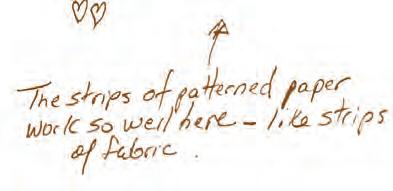 The strips of patterned paper
work so well here - like strips
of fabric.